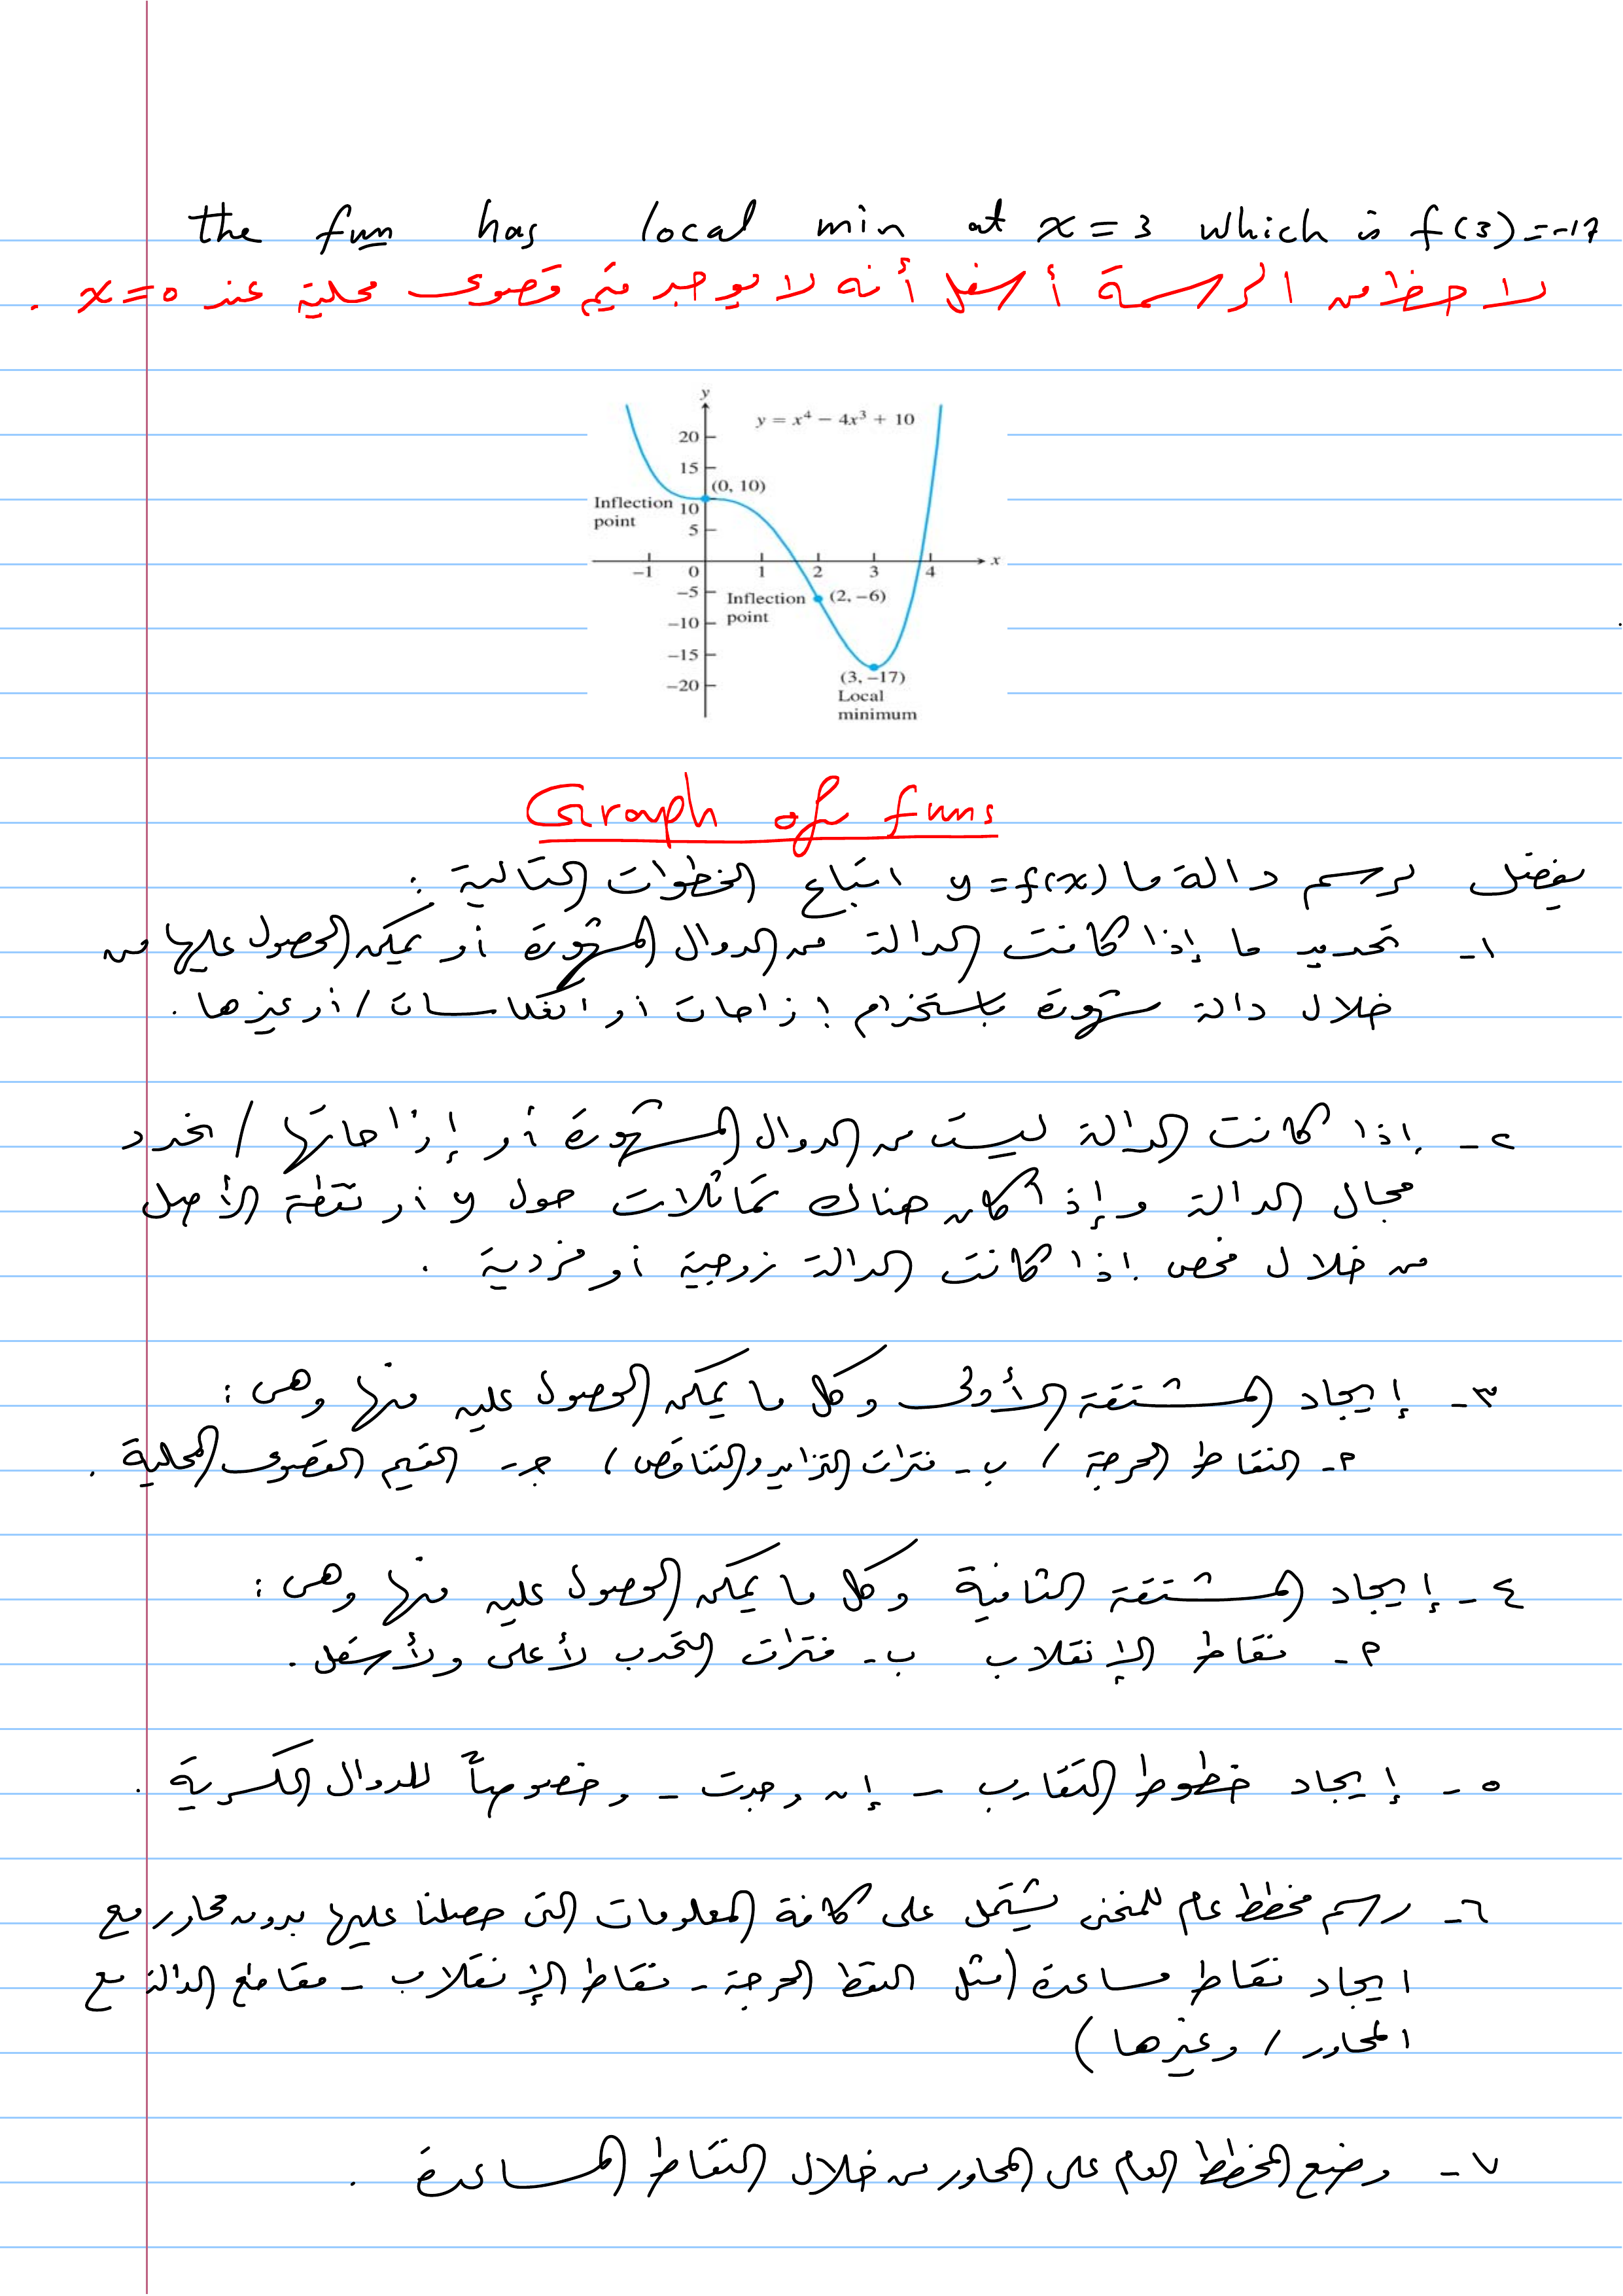 the fun has local min at x = 3 which is f(3) = -17
لاحظ من الرسمة أسفل أنه لا يوجد قيم قصوى محلية عند x = 0 .
y
y = x⁴ − 4x³ + 10
20
15
(0, 10)
Inflection point
10
5
−1 0 1 2 3 4 x
−5
Inflection point
(2, −6)
−10
−15
(3, −17)
−20
Local minimum
Graph of funs
يفضل لرسم دالة ما y = f(x) اتباع الخطوات التالية :
١- تحديد ما إذا كانت الدالة من الدوال المشهورة أو يمكن الحصول عليها من
خلال دالة مشهورة باستخدام إزاحات أو انعكاسات / أو غيرها .
٢- إذا كانت الدالة ليست من الدوال المشهورة أو إزاحاتها / نحدد
مجال الدالة وإذا كان هناك تماثلات حول y أو نقطة الأصل
من خلال فحص إذا كانت الدالة زوجية أو فردية .
٣- إيجاد المشتقة الأولى وكل ما يمكن الحصول عليه منها وهي :
أ- النقاط الحرجة / ب- فترات التزايد والتناقص / جـ- القيم القصوى المحلية .
٤- إيجاد المشتقة الثانية وكل ما يمكن الحصول عليه منها وهي :
أ- نقاط الإنقلاب ب- فترات التحدب لأعلى ولأسفل .
٥- إيجاد خطوط التقارب - إن وجدت - وخصوصاً للدوال الكسرية .
٦- رسم مخطط عام للمنحنى يشتمل على كافة المعلومات التي حصلنا عليها بدون محاور مع
ايجاد نقاط مساعدة (مثل النقط الحرجة - نقاط الإنقلاب - مقاطع الدالة مع
المحاور / وغيرها )
٧- وضع المخطط العام على المحاور من خلال النقاط المساعدة .